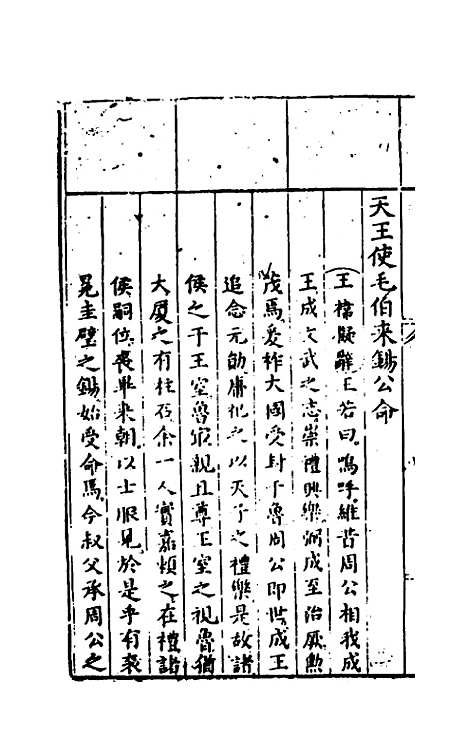 天王使毛伯來錫公命
王檮擬辭王若曰嗚呼維昔周公相我成
王成文武之志崇禮興樂弼成至治厥勲
茂焉爰祚大國受封于魯周公即世成王
追念元勛庸祀之以天子之禮樂是故諸
侯之于王室魯寂親且尊王室之視魯猶
大厦之有柱石余一人實嘉賴之在禮諸
侯嗣位喪畢來朝以士服見於是乎有衮
冕圭璧之錫始受命焉今叔父承周公之